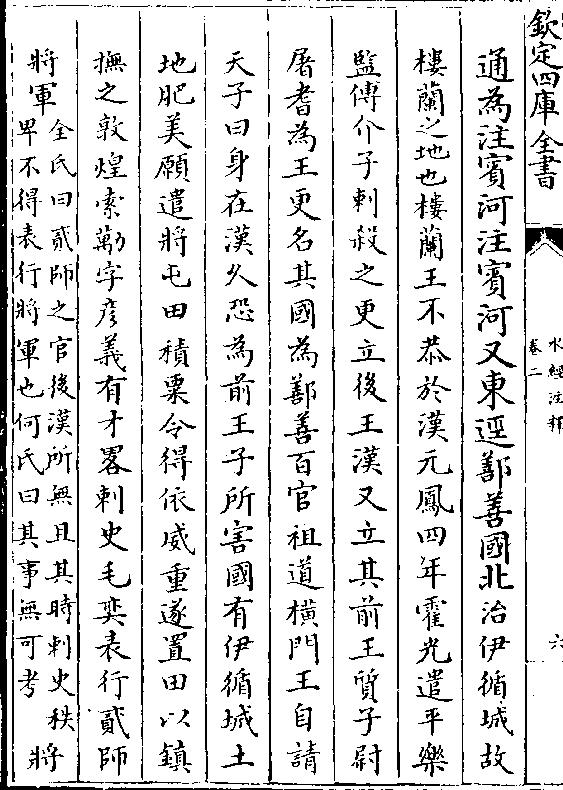 欽定四庫全書
水經注釋
卷二
六
通為注賓河注賓河又東逕鄯善國北治伊循城故
樓蘭之地也樓蘭王不恭於漢元鳳四年霍光遣平樂
監傅介子刺殺之更立後王漢又立其前王質子尉
屠耆為王更名其國為鄯善百官祖道橫門王自請
天子曰身在漢久恐為前王子所害國有伊循城土
地肥美願遣將屯田積粟令得依威重遂置田以鎮
撫之敦煌索勱字彦義有才畧刺史毛奕表行貳師
將軍
全氏曰貳師之官後漢所無且其時刺史秩
卑不得表行將軍也何氏曰其事無可考
將